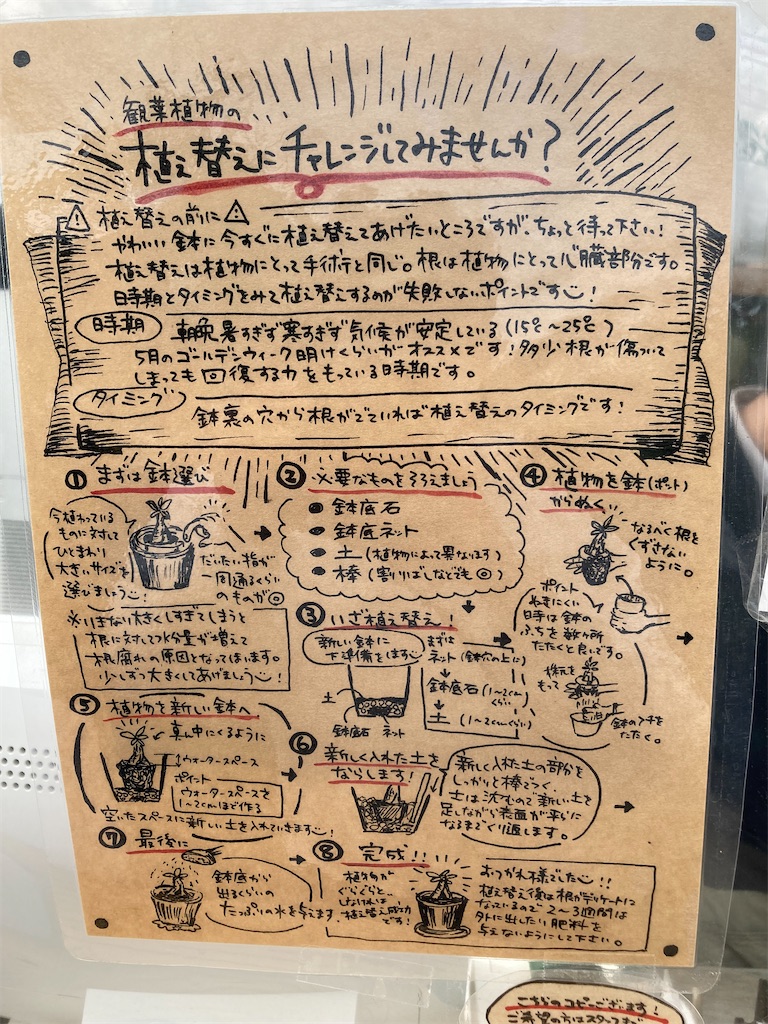 観葉植物の
植え替えにチャレンジしてみませんか?
⚠ 植え替えの前に ⚠
かわいい鉢に今すぐに植え替えてあげたいところですが、ちょっと待って下さい!
植え替えは植物にとって手術と同じ。根は植物にとって心臓部分です。
時期とタイミングをみて植え替えするのが失敗しないポイントです!
時期
朝晩暑すぎず寒すぎず気候が安定している(15℃〜25℃)
5月のゴールデンウィーク明けくらいがオススメです!多少根が傷ついて
しまっても回復する力をもっている時期です。
タイミング
鉢裏の穴から根がでていれば植え替えのタイミングです!
① まずは鉢選び
今植わっている
ものに対して
ひとまわり
大きいサイズを
選びましょう!
だいたい指が
一周通るくらい
のものが◎
※いきない大きくしすぎてしまうと
根に対して水分量が増えて
根腐れの原因となってしまいます。
少しずつ大きくしてあげましょう!
② 必要なものをそろえましょう
● 鉢底石
● 鉢底ネット
● 土(植物によって異なります)
● 棒(割りばしなどでも◎)
③ いざ植え替え!
新しい鉢に
下準備をします
まずは
ネット(鉢穴の上に)
鉢底石(1〜2cmくらい)
土(1〜2cmくらい)
土
鉢底石 ネット
④ 植物を鉢(ポット)
からぬく
なるべく根を
くずさない
ように。
ポイント
ぬきにくい
時は鉢の
ふちを数ヶ所
たたくと良いです。
株元を
もって
鉢のフチを
たたく。
⑤ 植物を新しい鉢へ
真ん中にくるように
↕ウォータースペース
ポイント
ウォータースペースを
1〜2cmほど作る
空いたスペースに新しい土を入れていきます!
⑥ 新しく入れた土を
ならします!
新しく入れた土の部分を
しっかりと棒でつく。
土は沈むので新しい土を
足しながら表面が平らに
なるまでくり返します。
⑦ 最後に
鉢底から
出るくらいの
たっぷりの水を与えます。
⑧ 完成!!
植物が
ぐらぐらと
しなければ
植え替え成功
です!
おつかれ様でした!!
植え替え後は根がデリケートに
なっているので2〜3週間は
外に出したり肥料を
与えないようにして下さい。
こちらのコピーございます!
ご希望の方はスタッフまで